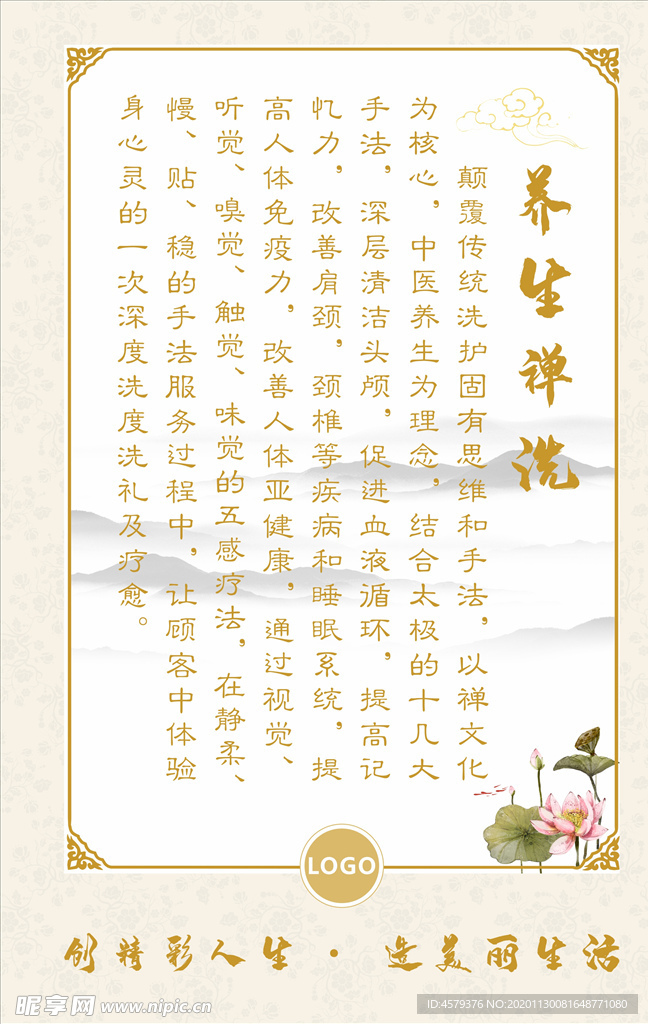 养生禅洗
颠覆传统洗护固有思维和手法，以禅文化
为核心，中医养生为理念，结合太极的十几大
手法，深层清洁头颅，促进血液循环，提高记
忆力，改善肩颈，颈椎等疾病和睡眠系统，提
高人体免疫力，改善人体亚健康，通过视觉、
听觉、嗅觉、触觉、味觉的五感疗法，在静柔、
慢、贴、稳的手法服务过程中，让顾客中体验
身心灵的一次深度洗度洗礼及疗愈。
LOGO
创精彩人生·造美丽生活
昵享网 www.nipic.cn
ID:4579376 NO:20201130081648771080